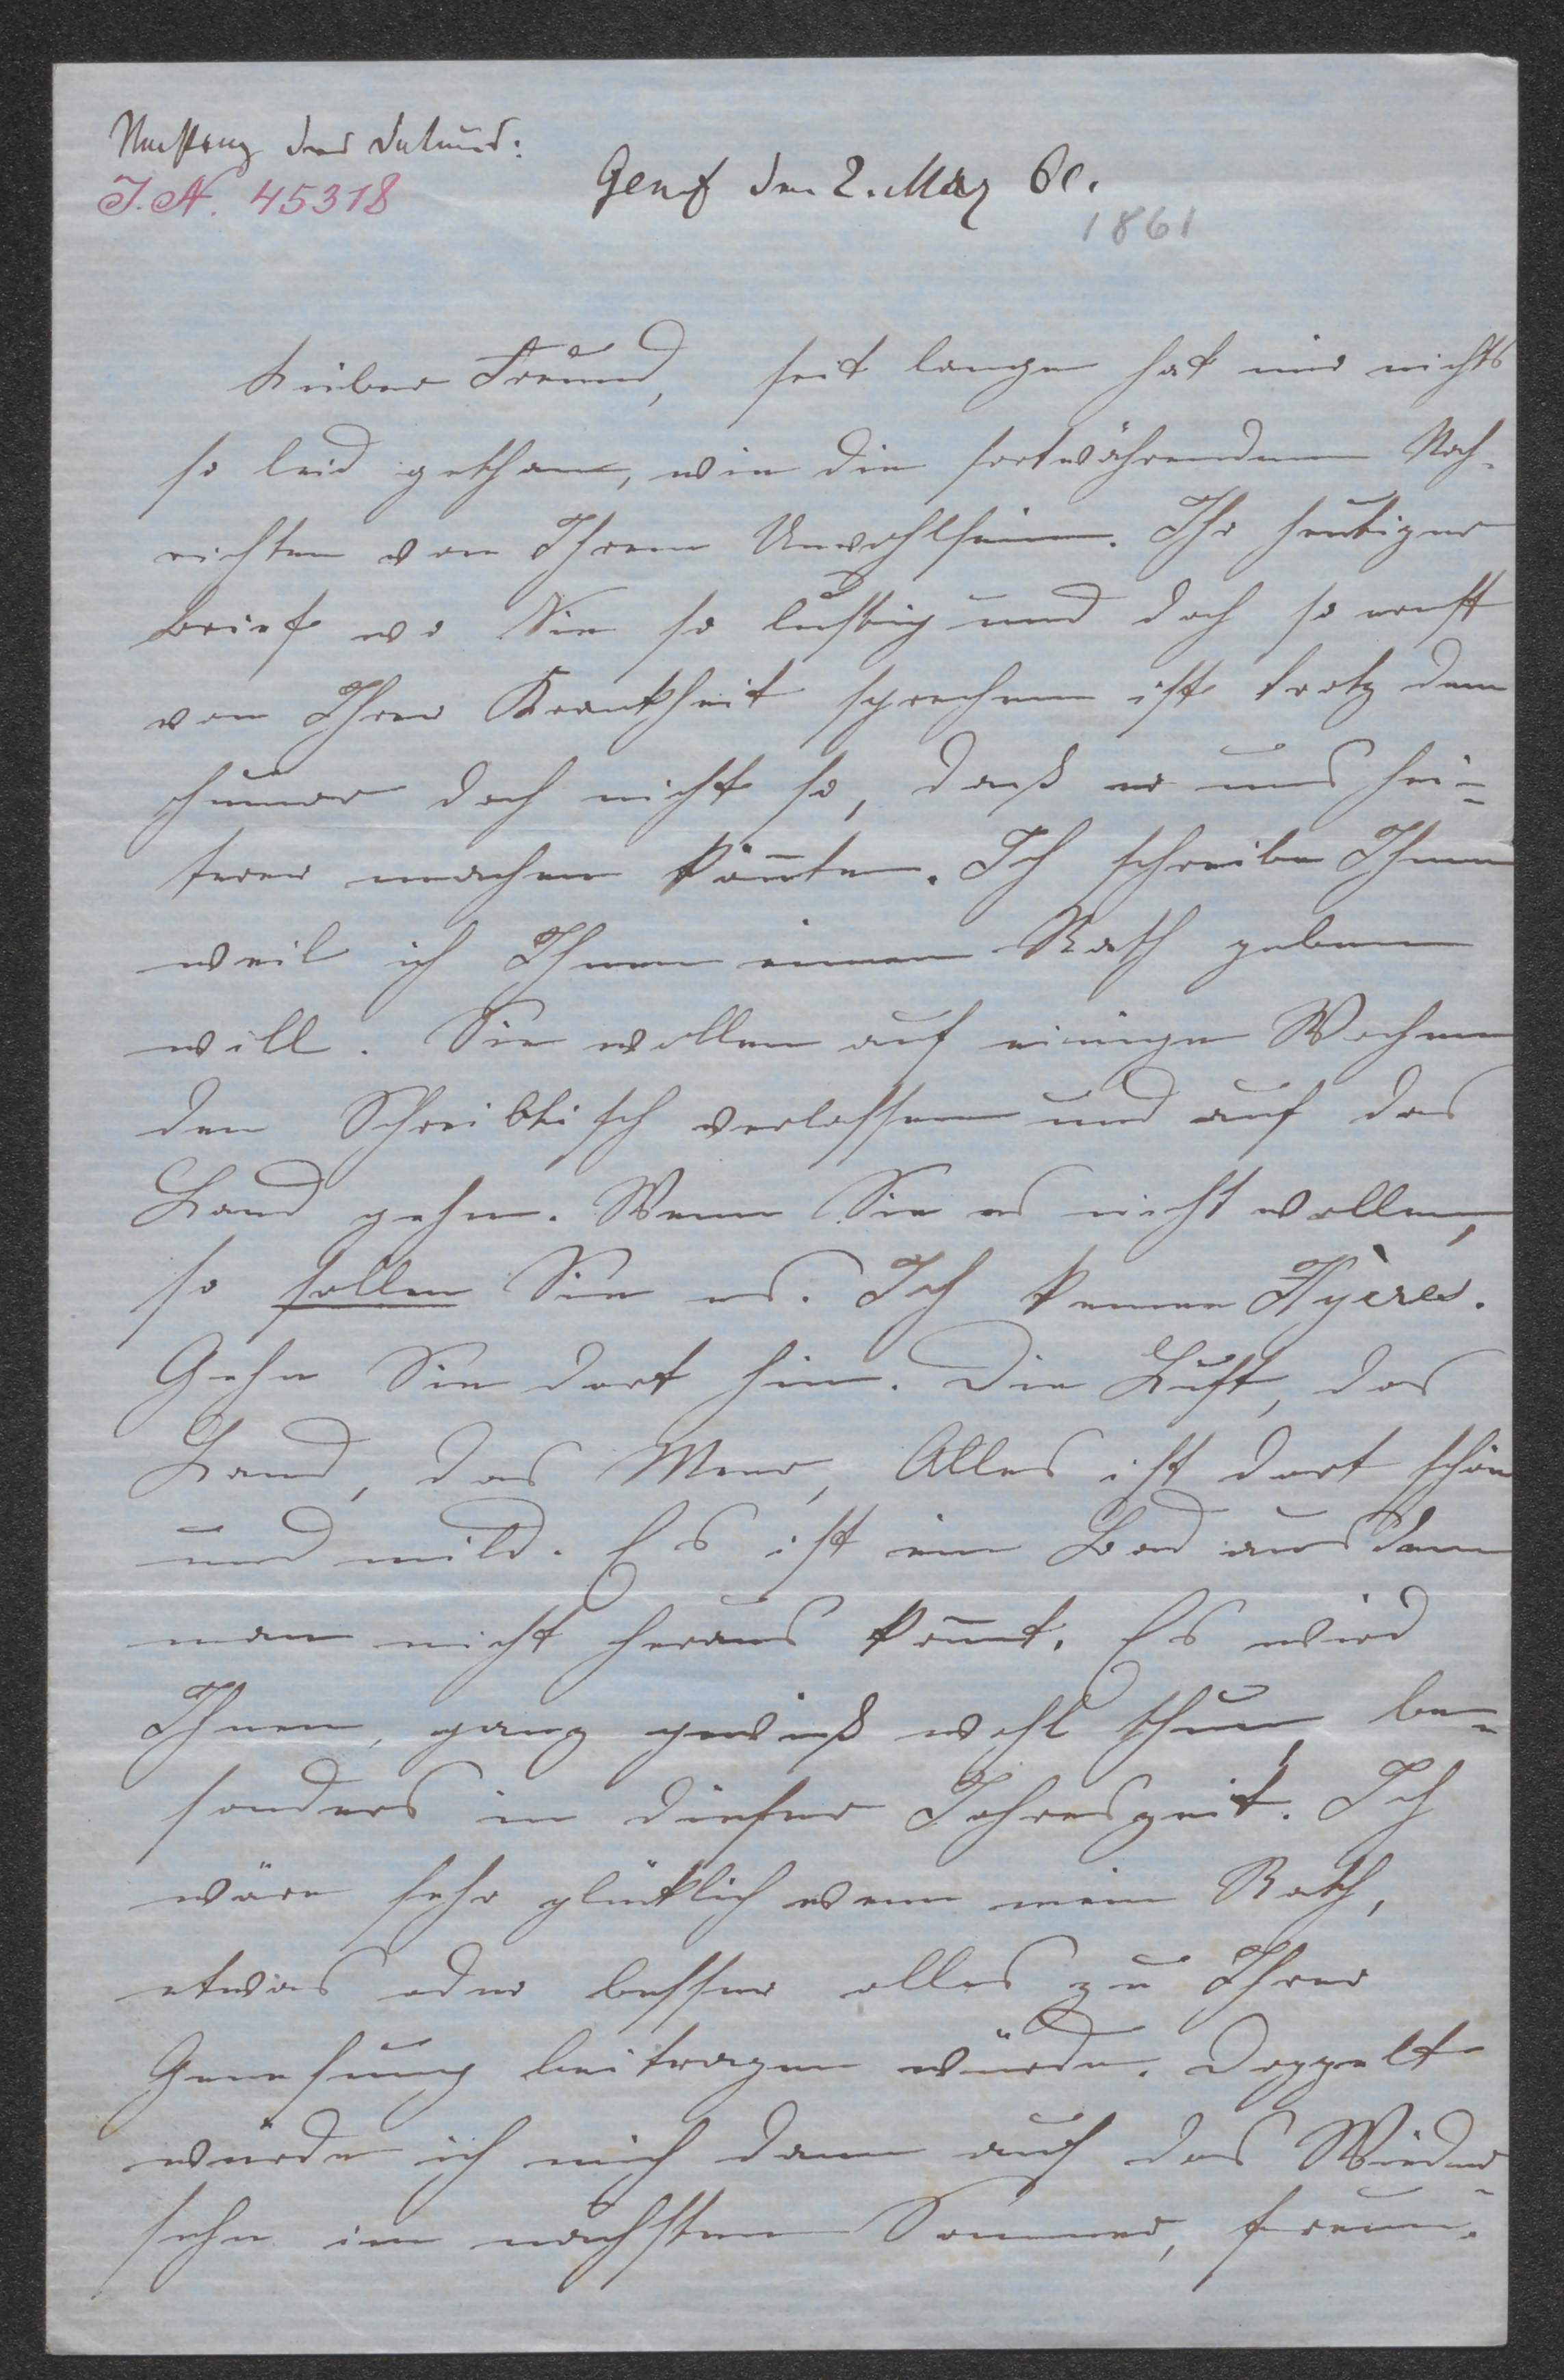 Nachlass des Dulund:
I.N. 45318
Genf den 2. März 60.
1861
Lieber Freund, seit lange hat mir nichts
so leid gethan, wie die fortwährenden Nach-
richten von Ihrem Unwohlsein. Ihr heutiger
Brief wo Sie so lustig und doch so ernst
von Ihrer Krankheit sprechen ist trotz dem
Humor doch nicht so, daß er uns hei-
terer machen könnte. Ich schreibe Ihnen
weil ich Ihnen einen Rath geben
will. Sie wollen auf einige Wochen
den Schreibtisch verlassen und auf das
Land gehn. Wenn Sie es nicht wollen,
so sollen Sie es. Ich kenne Hyères.
Gehn Sie dort hin. Die Luft, das
Land, das Meer, Alles ist dort schön
und mild. Es ist ein Bad aus dem
man nicht heraus kom̅t. Es wird
Ihnen, ganz gewiß wohl thun, be-
sonders in dieser Jahreszeit. Ich
wäre sehr glücklich wenn mein Rath,
etwas oder besser alles zu Ihrer
Genesung beitragen würde. Doppelt
würde ich mich dann auf das Wieder-
sehn im nächsten Sommer, freun.